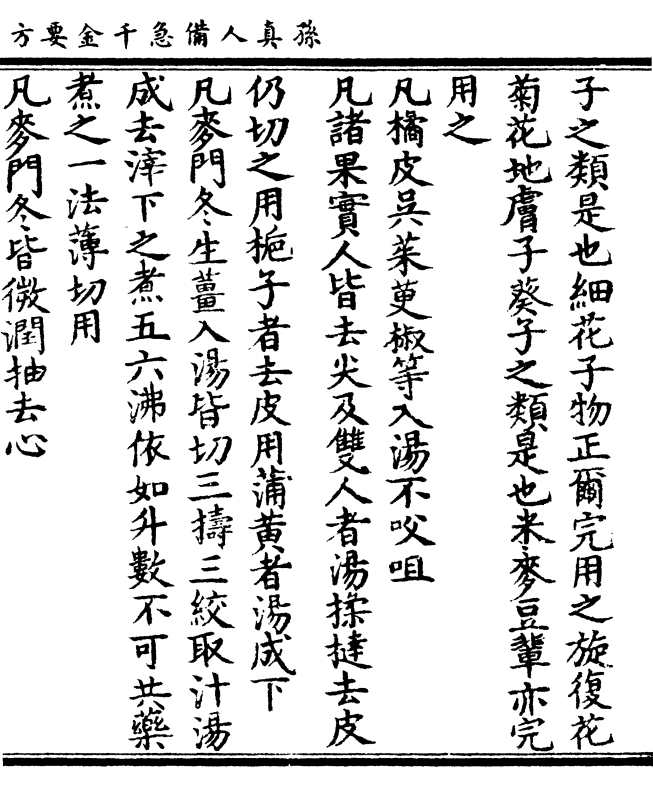 孫真人備急千金要方
子之類是也細花子物正爾完用之旋復花
菊花地膚子葵子之類是也米麥豆輩亦完
用之
凡橘皮吳茱萸椒等入湯不㕮咀
凡諸果實人皆去尖及雙人者湯揉撻去皮
仍切之用梔子者去皮用蒲黃者湯成下
凡麥門冬生薑入湯皆切三擣三絞取汁湯
成去滓下之煮五六沸依如升數不可共藥
煮之一法薄切用
凡麥門冬皆微潤抽去心